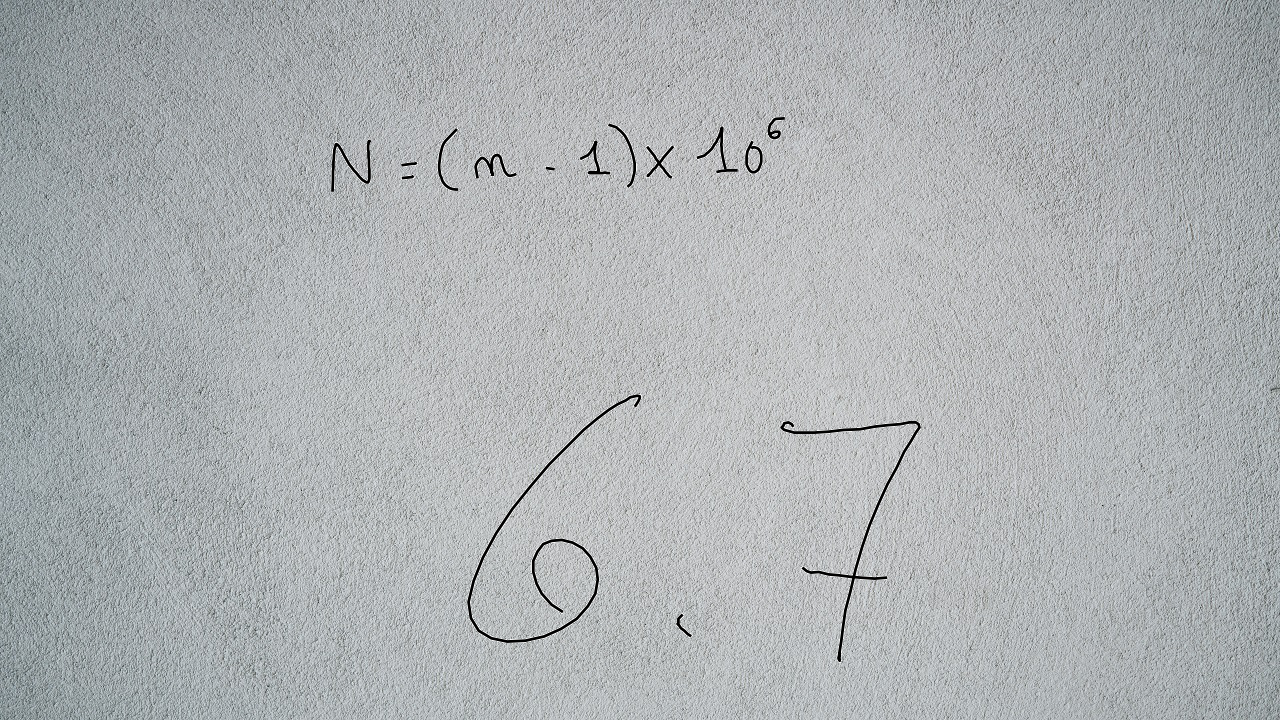 N = (n - 1) x 10⁶
6.7